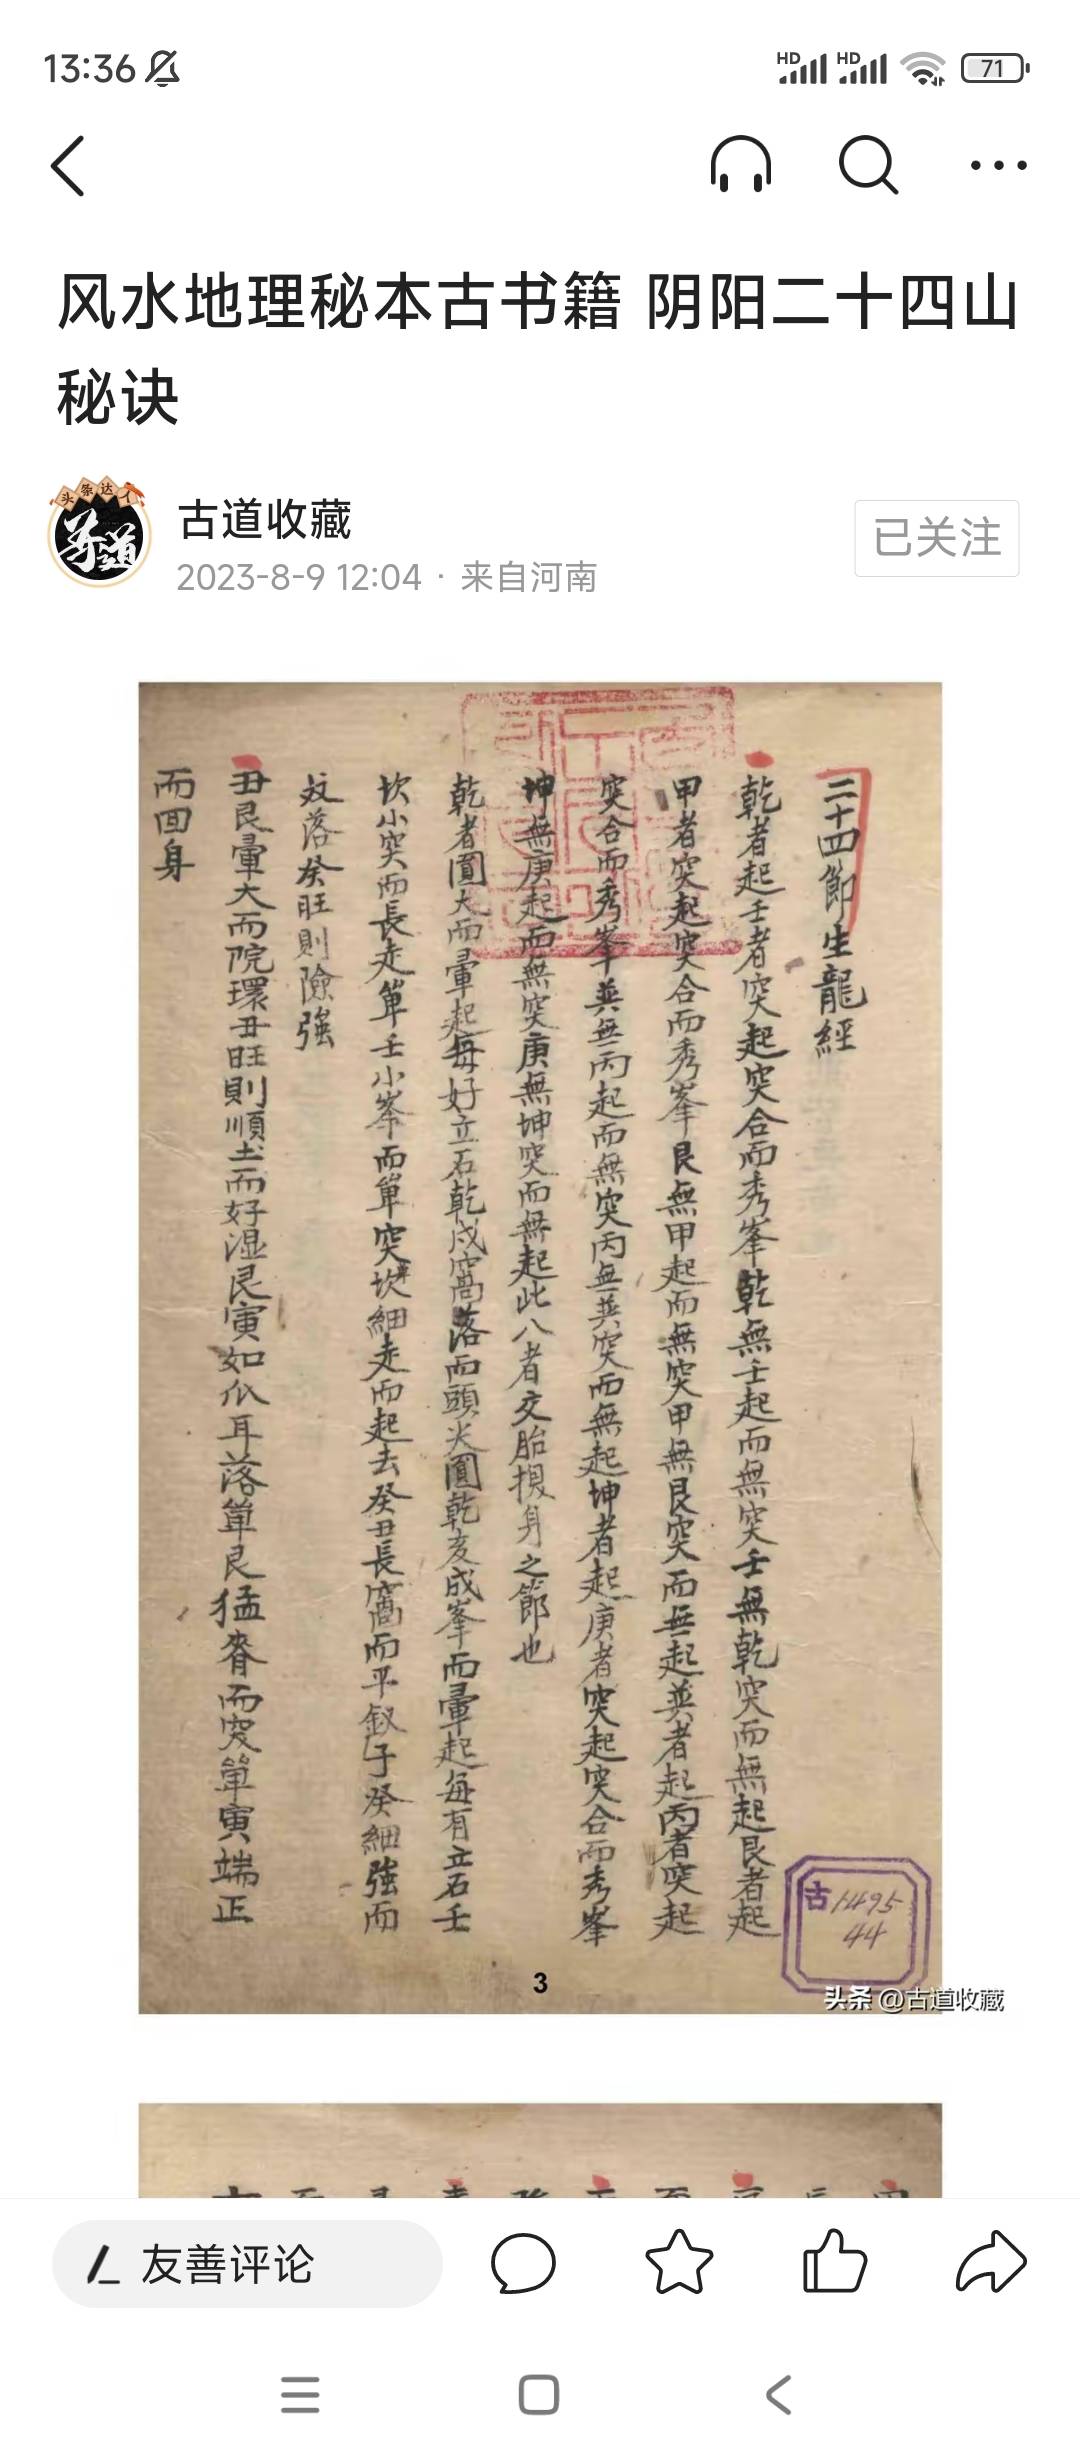 13:36
HD HD 71
风水地理秘本古书籍 阴阳二十四山
秘诀
头条达人
寻道
古道收藏
2023-8-9 12:04 · 来自河南
已关注
二十四節生龍經
乾者起壬者突起突合而秀峯乾無壬起而無突壬無乾突而無起艮者起
甲者突起突合而秀峯艮無甲起而無突甲無艮突而無起巽者起丙者突起
突合而秀峯巽無丙起而無突丙無巽突而無起坤者起庚者突起突合而秀峯
坤無庚起而無突庚無坤突而無起此八者交胎換身之節也
乾者圓大而暈起每好立石乾戌窩落而頭尖圓乾亥成峯而暈起每有立石壬
坎小突而長走單壬小峯而單突坎細走而起去癸丑長窩而平釵子癸細強而
落癸旺則險強
丑艮暈大而院環丑旺則順土而好湿艮寅如瓜耳落單艮猛脊而突單寅端正
而回身
古1495
44
3
头条 @古道收藏
友善评论